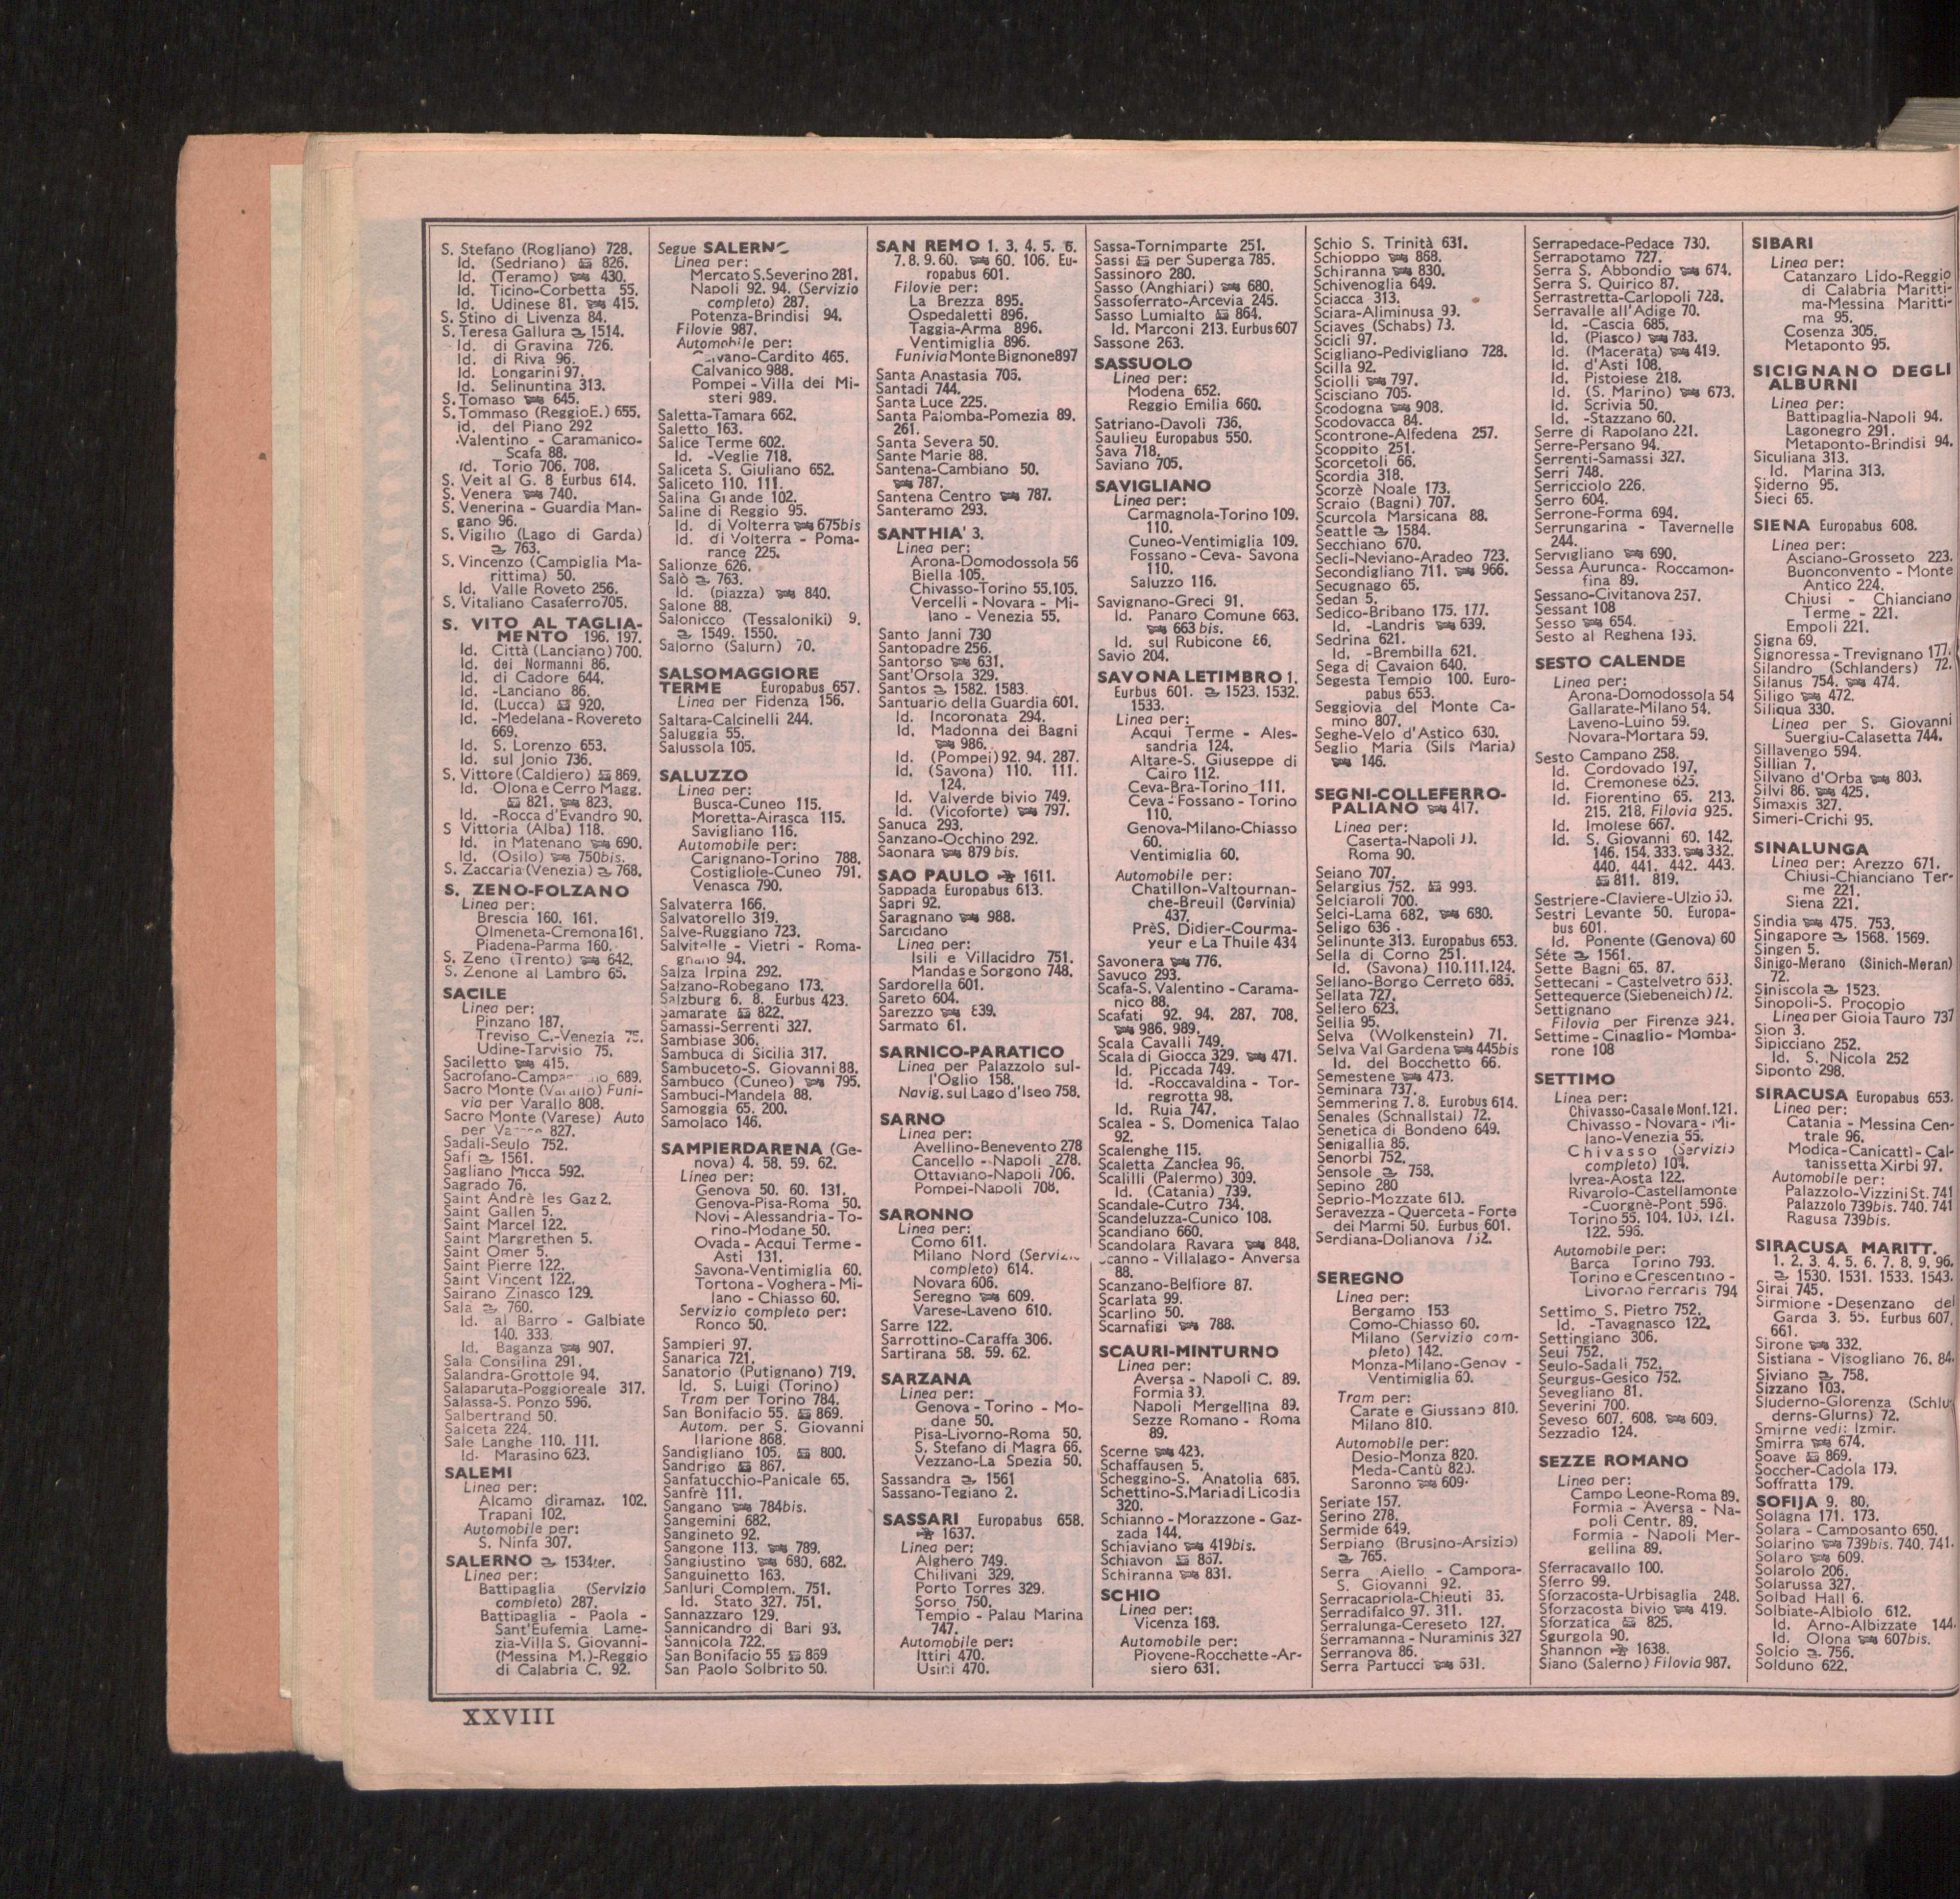 S. Stefano (Rogliano) 728.
Id. (Sedriano) 826.
Id. (Teramo) 430.
Id. Ticino-Corbetta 55.
Id. Udinese 81. 415.
S. Stino di Livenza 84.
S. Teresa Gallura 1514.
Id. di Gravina 726.
Id. di Riva 96.
Id. Longarini 97.
Id. Selinuntina 313.
S. Tomaso 645.
S. Tommaso (Reggio E.) 655.
id. del Piano 292
Valentino - Caramanico-
Scafa 88.
Id. Torio 706. 708.
S. Veit al G. 8 Eurbus 614.
S. Venera 740.
S. Venerina - Guardia Man-
gano 96.
S. Vigilio (Lago di Garda)
763.
S. Vincenzo (Campiglia Ma-
rittima) 50.
Id. Valle Roveto 256.
S. Vitaliano Casaferro 705.
S. VITO AL TAGLIA-
MENTO 196. 197.
Id. Città (Lanciano) 700.
Id. dei Normanni 86.
Id. di Cadore 644.
Id. -Lanciano 86.
Id. (Lucca) 920.
Id. -Medelana-Rovereto
669.
Id. S. Lorenzo 653.
Id. sul Jonio 736.
S. Vittore (Caldiero) 869.
Id. Olona e Cerro Magg.
821. 823.
Id. -Rocca d'Evandro 90.
S Vittoria (Alba) 118.
Id. in Matenano 690.
Id. (Osilo) 750bis.
S. Zaccaria (Venezia) 768.
S. ZENO-FOLZANO
Linea per:
Brescia 160. 161.
Olmeneta-Cremona 161.
Piadena-Parma 160.
S. Zeno (Trento) 642.
S. Zenone al Lambro 65.
SACILE
Linea per:
Pinzano 187.
Treviso C.-Venezia 75.
Udine-Tarvisio 75.
Saciletto 415.
689.
Sacro Monte (Varallo) Funi-
via per Varallo 808.
Sacro Monte (Varese) Auto
per 827.
Sadali-Seulo 752.
Safi 1561.
Sagliano Micca 592.
Sagrado 76.
Saint Andrè les Gaz 2.
Saint Gallen 5.
Saint Marcel 122.
Saint Margrethen 5.
Saint Omer 5.
Saint Pierre 122.
Saint Vincent 122.
Sairano Zinasco 129.
Sala 760.
Id. al Barro - Galbiate
140. 333.
Id. Baganza 907.
Sala Consilina 291.
Salandra-Grottole 94.
Salaparuta-Poggioreale 317.
Salassa-S. Ponzo 596.
Salbertrand 50.
Salceta 224.
Sale Langhe 110. 111.
Id. Marasino 623.
SALEMI
Linea per:
Alcamo diramaz. 102.
Trapani 102.
Automobile per:
S. Ninfa 307.
SALERNO 1534ter.
Linea per:
Battipaglia (Servizio
completo) 287.
Battipaglia - Paola -
Sant'Eufemia Lame-
zia-Villa S. Giovanni-
(Messina M.)-Reggio
di Calabria C. 92.
Segue SALERNO
Linea per:
Mercato S.Severino 281.
Napoli 92. 94. (Servizio
completo) 287.
Potenza-Brindisi 94.
Filovie 987.
Automobile per:
-Cardito 465.
Calvanico 988.
Pompei - Villa dei Mi-
steri 989.
Saletta-Tamara 662.
Saletto 163.
Salice Terme 602.
Id. -Veglie 718.
Saliceta S. Giuliano 652.
Saliceto 110. 111.
Salina Grande 102.
Saline di Reggio 95.
Id. di Volterra 675bis
Id. di Volterra - Poma-
rance 225.
Salionze 626.
Salò 763.
Id. (piazza) 840.
Salone 88.
Salonicco (Tessaloniki) 9.
1549. 1550.
Salorno (Salurn) 70.
SALSOMAGGIORE
TERME Europabus 657.
Linea per Fidenza 156.
Saltara-Calcinelli 244.
Saluggia 55.
Salussola 105.
SALUZZO
Linea per:
Busca-Cuneo 115.
Moretta-Airasca 115.
Savigliano 116.
Automobile per:
Carignano-Torino 788.
Costigliole-Cuneo 791.
Venasca 790.
Salvaterra 166.
Salvatorello 319.
Salve-Ruggiano 723.
Salvitelle - Vietri - Roma-
gnano 94.
Salza Irpina 292.
Salzano-Robegano 173.
Salzburg 6. 8. Eurbus 423.
Samarate 822.
Samassi-Serrenti 327.
Sambiase 306.
Sambuca di Sicilia 317.
Sambuceto-S. Giovanni 88.
Sambuco (Cuneo) 795.
Sambuci-Mandela 88.
Samoggia 65. 200.
Samolaco 146.
SAMPIERDARENA (Ge-
nova) 4. 58. 59. 62.
Linea per:
Genova 50. 60. 131.
Genova-Pisa-Roma 50.
Novi - Alessandria - To-
rino-Modane 50.
Ovada - Acqui Terme -
Asti 131.
Savona-Ventimiglia 60.
Tortona - Voghera - Mi-
lano - Chiasso 60.
Servizio completo per:
Ronco 50.
Sampieri 97.
Sanarica 721.
Sanatorio (Putignano) 719.
Id. S. Luigi (Torino)
Tram per Torino 784.
San Bonifacio 55. 869.
Autom. per S. Giovanni
Ilarione 868.
Sandigliano 105. 800.
Sandrigo 867.
Sanfatucchio-Panicale 65.
Sanfrè 111.
Sangano 784bis.
Sangemini 682.
Sangineto 92.
Sangone 113. 789.
Sangiustino 680. 682.
Sanguinetto 163.
Sanluri Complem. 751.
Id. Stato 327. 751.
Sannazzaro 129.
Sannicandro di Bari 93.
Sannicola 722.
San Bonifacio 55 869
San Paolo Solbrito 50.
SAN REMO 1. 3. 4. 5. 6.
7. 8. 9. 60. 60. 106. Eu-
ropabus 601.
Filovie per:
La Brezza 895.
Ospedaletti 896.
Taggia-Arma 896.
Ventimiglia 896.
Funivia Monte Bignone 897
Santa Anastasia 705.
Santadi 744.
Santa Luce 225.
Santa Palomba-Pomezia 89.
261.
Santa Severa 50.
Sante Marie 88.
Santena-Cambiano 50.
787.
Santena Centro 787.
Santeramo 293.
SANTHIA' 3.
Linea per:
Arona-Domodossola 56
Biella 105.
Chivasso-Torino 55.105.
Vercelli - Novara - Mi-
lano - Venezia 55.
Santo Janni 730
Santopadre 256.
Santorso 631.
Sant'Orsola 329.
Santos 1582. 1583.
Santuario della Guardia 601.
Id. Incoronata 294.
Id. Madonna dei Bagni
986.
Id. (Pompei) 92. 94. 287.
Id. (Savona) 110. 111.
124.
Id. Valverde bivio 749.
Id. (Vicoforte) 797.
Sanuca 293.
Sanzano-Occhino 292.
Saonara 879 bis.
SAO PAULO 1611.
Sappada Europabus 613.
Sapri 92.
Saragnano 988.
Sarcidano
Linea per:
Isili e Villacidro 751.
Mandas e Sorgono 748.
Sardorella 601.
Sareto 604.
Sarezzo 839.
Sarmato 61.
SARNICO-PARATICO
Linea per Palazzolo sul-
l'Oglio 158.
Navig. sul Lago d'Iseo 758.
SARNO
Linea per:
Avellino-Benevento 278
Cancello - Napoli 278.
Ottaviano-Napoli 706.
Pompei-Napoli 708.
SARONNO
Linea per:
Como 611.
Milano Nord (Servizio
completo) 614.
Novara 606.
Seregno 609.
Varese-Laveno 610.
Sarre 122.
Sarrottino-Caraffa 306.
Sartirana 58. 59. 62.
SARZANA
Linea per:
Genova - Torino - Mo-
dane 50.
Pisa-Livorno-Roma 50.
S. Stefano di Magra 66.
Vezzano-La Spezia 50.
Sassandra 1561
Sassano-Tegiano 2.
SASSARI Europabus 658.
1637.
Linea per:
Alghero 749.
Chilivani 329.
Porto Torres 329.
Sorso 750.
Tempio - Palau Marina
747.
Automobile per:
Ittiri 470.
Usini 470.
Sassa-Tornimparte 251.
Sassi per Superga 785.
Sassinoro 280.
Sasso (Anghiari) 680.
Sassoferrato-Arcevia 245.
Sasso Lumialto 864.
Id. Marconi 213. Eurbus 607
Sassone 263.
SASSUOLO
Linea per:
Modena 652.
Reggio Emilia 660.
Satriano-Davoli 736.
Saulieu Europabus 550.
Sava 718.
Saviano 705.
SAVIGLIANO
Linea per:
Carmagnola-Torino 109.
110.
Cuneo-Ventimiglia 109.
Fossano - Ceva- Savona
110.
Saluzzo 116.
Savignano-Greci 91.
Id. Panaro Comune 663.
663 bis.
Id. sul Rubicone 86.
Savio 204.
SAVONA LETIMBRO 1.
Eurbus 601. 1523. 1532.
1533.
Linea per:
Acqui Terme - Ales-
sandria 124.
Altare-S. Giuseppe di
Cairo 112.
Ceva-Bra-Torino 111.
Ceva - Fossano - Torino
110.
Genova-Milano-Chiasso
60.
Ventimiglia 60.
Automobile per:
Chatillon-Valtournan-
che-Breuil (Cervinia)
437.
PrèS. Didier-Courma-
yeur e La Thuile 434
Savonera 776.
Savuco 293.
Scafa-S. Valentino - Carama-
nico 88.
Scafati 92. 94. 287. 708.
986. 989.
Scala Cavalli 749.
Scala di Giocca 329. 471.
Id. Piccada 749.
Id. -Roccavaldina - Tor-
regrotta 98.
Id. Ruia 747.
Scalea - S. Domenica Talao
92.
Scalenghe 115.
Scaletta Zanclea 96.
Scalilli (Palermo) 309.
Id. (Catania) 739.
Scandale-Cutro 734.
Scandeluzza-Cunico 108.
Scandiano 660.
Scandolara Ravara 848.
Scanno - Villalago - Anversa
88.
Scanzano-Belfiore 87.
Scarlata 99.
Scarlino 50.
Scarnafigi 788.
SCAURI-MINTURNO
Linea per:
Aversa - Napoli C. 89.
Formia 89.
Napoli Mergellina 89.
Sezze Romano - Roma
89.
Scerne 423.
Schaffausen 5.
Scheggino-S. Anatolia 685.
Schettino-S.Maria di Licodia
320.
Schianno - Morazzone - Gaz-
zada 144.
Schiaviano 419bis.
Schiavon 867.
Schiranna 831.
SCHIO
Linea per:
Vicenza 168.
Automobile per:
Piovene-Rocchette-Ar-
siero 631.
Schio S. Trinità 631.
Schioppo 868.
Schiranna 830.
Schivenoglia 649.
Sciacca 313.
Sciara-Aliminusa 99.
Sciaves (Schabs) 73.
Scicli 97.
Scigliano-Pedivigliano 728.
Scilla 92.
Sciolli 797.
Scisciano 705.
Scodogna 908.
Scodovacca 84.
Scontrone-Alfedena 257.
Scoppito 251.
Scorcetoli 66.
Scordia 318.
Scorzè Noale 173.
Scraio (Bagni) 707.
Scurcola Marsicana 88.
Seattle 1584.
Secchiano 670.
Seclì-Neviano-Aradeo 723.
Secondigliano 711. 966.
Secugnago 65.
Sedan 5.
Sedico-Bribano 175. 177.
Id. -Landris 639.
Sedrina 621.
Id. -Brembilla 621.
Sega di Cavaion 640.
Segesta Tempio 100. Euro-
pabus 653.
Seggiovia del Monte Ca-
mino 807.
Seghe-Velo d'Astico 630.
Seglio Maria (Sils Maria)
146.
SEGNI-COLLEFERRO-
PALIANO 417.
Linea per:
Caserta-Napoli 90.
Roma 90.
Seiano 707.
Selargius 752. 993.
Selciaroli 700.
Selci-Lama 682. 680.
Seligo 636.
Selinunte 313. Europabus 653.
Sella di Corno 251.
Id. (Savona) 110.111.124.
Sellano-Borgo Cerreto 685.
Sellata 727.
Sellero 623.
Sellia 95.
Selva (Wolkenstein) 71.
Selva Val Gardena 445bis
Id. del Bocchetto 66.
Semestene 473.
Seminara 737.
Semmering 7. 8. Eurobus 614.
Senales (Schnallstal) 72.
Senetica di Bondeno 649.
Senigallia 86.
Senorbì 752.
Sensole 758.
Sepino 280
Seprio-Mozzate 610.
Seravezza - Querceta - Forte
dei Marmi 50. Eurbus 601.
Serdiana-Dolianova 752.
SEREGNO
Linea per:
Bergamo 153
Como-Chiasso 60.
Milano (Servizio com-
pleto) 142.
Monza-Milano-Genov -
Ventimiglia 60.
Tram per:
Carate e Giussano 810.
Milano 810.
Automobile per:
Desio-Monza 820.
Meda-Cantù 820.
Saronno 609.
Seriate 157.
Serino 278.
Sermide 649.
Serpiano (Brusino-Arsizio)
765.
Serra Aiello - Campora-
S. Giovanni 92.
Serracapriola-Chieuti 86.
Serradifalco 97. 311.
Serralunga-Cereseto 127.
Serramanna - Nuraminis 327
Serranova 86.
Serra Partucci 681.
Serrapedace-Pedace 730.
Serrapotamo 727.
Serra S. Abbondio 674.
Serra S. Quirico 87.
Serrastretta-Carlopoli 728.
Serravalle all'Adige 70.
Id. -Cascia 685.
Id. (Piasco) 783.
Id. (Macerata) 419.
Id. d'Asti 108.
Id. Pistoiese 218.
Id. (S. Marino) 673.
Id. Scrivia 50.
Id. -Stazzano 60.
Serre di Rapolano 221.
Serre-Persano 94.
Serrenti-Samassi 327.
Serri 748.
Serricciolo 226.
Serro 604.
Serrone-Forma 694.
Serrungarina - Tavernelle
244.
Servigliano 690.
Sessa Aurunca- Roccamon-
fina 89.
Sessano-Civitanova 257.
Sessant 108
Sesso 654.
Sesto al Reghena 196.
SESTO CALENDE
Linea per:
Arona-Domodossola 54
Gallarate-Milano 54.
Laveno-Luino 59.
Novara-Mortara 59.
Sesto Campano 258.
Id. Cordovado 197.
Id. Cremonese 625.
Id. Fiorentino 65. 213.
215. 218. Filovia 925.
Id. Imolese 667.
Id. S. Giovanni 60. 142.
146. 154. 333. 332.
440. 441. 442. 443.
811. 819.
Sestriere-Claviere-Ulzio 50.
Sestri Levante 50. Europa-
bus 601.
Id. Ponente (Genova) 60
Sète 1561.
Sette Bagni 65. 87.
Settecani - Castelvetro 663.
Settequerce (Siebeneich) 72.
Settignano
Filovia per Firenze 924.
Settime - Cinaglio - Momba-
rone 108
SETTIMO
Linea per:
Chivasso-Casale Monf.121.
Chivasso - Novara - Mi-
lano-Venezia 55.
Chivasso (Servizio
completo) 104.
Ivrea-Aosta 122.
Rivarolo-Castellamonte
-Cuorgnè-Pont 596.
Torino 55. 104. 105. 121.
122. 596.
Automobile per:
Barca Torino 793.
Torino e Crescentino -
Livorno Ferraris 794
Settimo S. Pietro 752.
Id. -Tavagnasco 122.
Settingiano 306.
Seui 752.
Seulo-Sadali 752.
Seurgus-Gesico 752.
Sevegliano 81.
Severini 700.
Seveso 607. 608. 609.
Sezzadio 124.
SEZZE ROMANO
Linea per:
Campo Leone-Roma 89.
Formia - Aversa - Na-
poli Centr. 89.
Formia - Napoli Mer-
gellina 89.
Sferracavallo 100.
Sferro 99.
Sforzacosta-Urbisaglia 248.
Sforzacosta bivio 419.
Sforzatica 825.
Sgurgola 90.
Shannon 1638.
Siano (Salerno) Filovia 987.
SIBARI
Linea per:
Catanzaro Lido-Reggio
di Calabria Maritti-
ma-Messina Maritti-
ma 95.
Cosenza 305.
Metaponto 95.
SICIGNANO DEGLI
ALBURNI
Linea per:
Battipaglia-Napoli 94.
Lagonegro 291.
Metaponto-Brindisi 94.
Siculiana 313.
Id. Marina 313.
Siderno 95.
Sieci 65.
SIENA Europabus 608.
Linea per:
Asciano-Grosseto 223.
Buonconvento - Monte
Antico 224.
Chiusi - Chianciano
Terme - 221.
Empoli 221.
Signa 69.
Signoressa - Trevignano 177.
Silandro (Schlanders) 72.
Silanus 754. 474.
Siligo 472.
Siliqua 330.
Linea per S. Giovanni
Suergiu-Calasetta 744.
Sillavengo 594.
Sillian 7.
Silvano d'Orba 803.
Silvi 86. 425.
Simaxis 327.
Simeri-Crichi 95.
SINALUNGA
Linea per: Arezzo 671.
Chiusi-Chianciano Ter-
me 221.
Siena 221.
Sindia 475. 753.
Singapore 1568. 1569.
Singen 5.
Sinigo-Merano (Sinich-Meran)
72.
Siniscola 1523.
Sinopoli-S. Procopio
Linea per Gioia Tauro 737
Sion 3.
Sipicciano 252.
Id. S. Nicola 252
Siponto 298.
SIRACUSA Europabus 653.
Linea per:
Catania - Messina Cen-
trale 96.
Modica-Canicattì - Cal-
tanissetta Xirbi 97.
Automobile per:
Palazzolo-Vizzini St. 741
Palazzolo 739bis. 740. 741
Ragusa 739bis.
SIRACUSA MARITT.
1. 2. 3. 4. 5. 6. 7. 8. 9. 96.
1530. 1531. 1533. 1543.
Sirai 745.
Sirmione -Desenzano del
Garda 3. 55. Eurbus 607.
661.
Sirone 332.
Sistiana - Visogliano 76. 84.
Siviano 758.
Sizzano 103.
Sluderno-Glorenza (Schlu
derns-Glurns) 72.
Smirne vedi: Izmir.
Smirra 674.
Soave 869.
Soccher-Cadola 179.
Soffratta 179.
SOFIJA 9. 80.
Solagna 171. 173.
Solara - Camposanto 650.
Solarino 739bis. 740. 741.
Solaro 609.
Solarolo 206.
Solarussa 327.
Solbad Hall 6.
Solbiate-Albiolo 612.
Id. Arno-Albizzate 144.
Id. Olona 607bis.
Solcio 756.
Solduno 622.
XXVIII